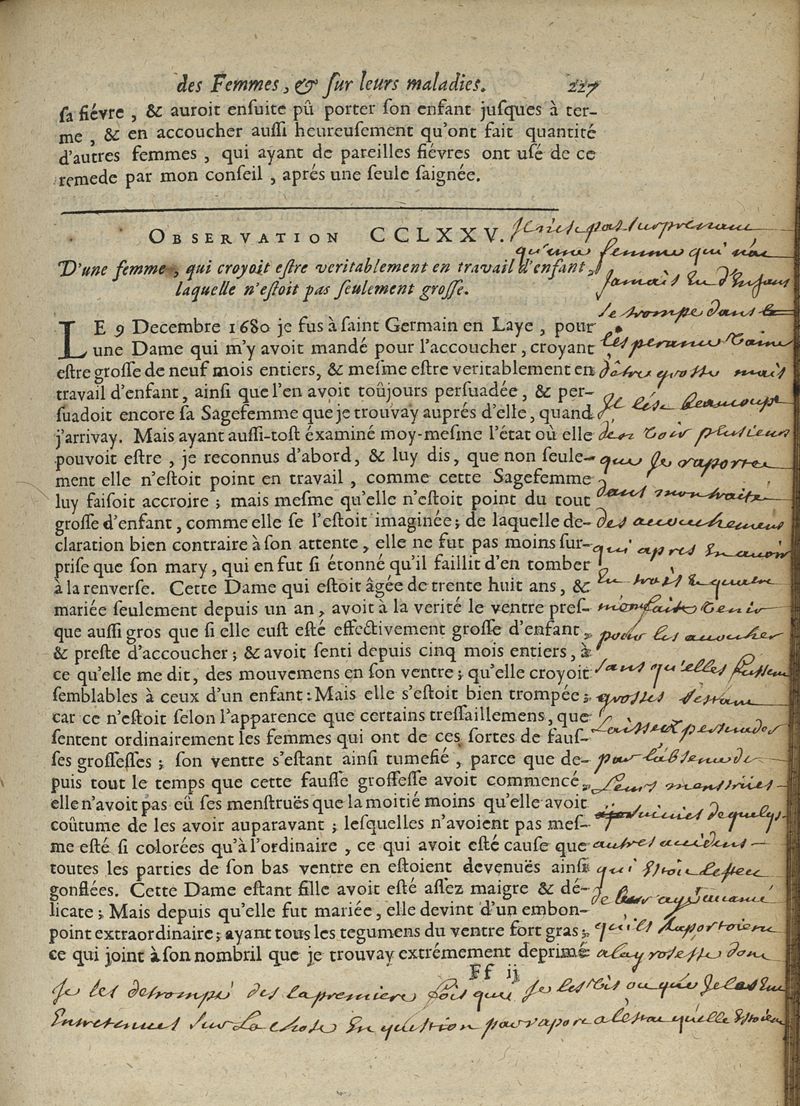 des Femmes, & ſur leurs maladies. 227
ſa fiévre, & auroit enſuite pû porter ſon enfant juſques à ter-
me, & en accoucher auſſi heureuſement qu'ont fait quantité
d'autres femmes, qui ayant de pareilles fiévres ont uſé de ce
remede par mon conſeil, aprés une ſeule ſaignée.
OBSERVATION CCLXXV.
D'une femme, qui croyoit eſtre veritablement en travail d'enfant,
laquelle n'eſtoit pas ſeulement groſſe.
LE 9 Decembre 1680 je fus à ſaint Germain en Laye, pour
une Dame qui m'y avoit mandé pour l'accoucher, croyant
eſtre groſſe de neuf mois entiers, & meſme eſtre veritablement en
travail d'enfant, ainſi que l'en avoit toûjours perſuadée, & per-
ſuadoit encore ſa Sagefemme que je trouvay auprés d'elle, quand
j'arrivay. Mais ayant auſſi-toſt éxaminé moy-meſme l'état où elle
pouvoit eſtre, je reconnus d'abord, & luy dis, que non ſeule-
ment elle n'eſtoit point en travail, comme cette Sagefemme
luy faiſoit accroire; mais meſme qu'elle n'eſtoit point du tout
groſſe d'enfant, comme elle ſe l'eſtoit imaginée; de laquelle de-
claration bien contraire à ſon attente, elle ne fut pas moins ſur-
priſe que ſon mary, qui en fut ſi étonné qu'il faillit d'en tomber
à la renverſe. Cette Dame qui eſtoit âgée de trente huit ans, &
mariée ſeulement depuis un an, avoit à la verité le ventre preſ-
que auſſi gros que ſi elle euſt eſté effectivement groſſe d'enfant,
& preſte d'accoucher; & avoit ſenti depuis cinq mois entiers, à
ce qu'elle me dit, des mouvemens en ſon ventre; qu'elle croyoit
ſemblables à ceux d'un enfant: Mais elle s'eſtoit bien trompée;
car ce n'eſtoit ſelon l'apparence que certains treſſaillemens, que
ſentent ordinairement les femmes qui ont de ces ſortes de fauſ-
ſes groſſeſſes; ſon ventre s'eſtant ainſi tumefié, parce que de-
puis tout le temps que cette fauſſe groſſeſſe avoit commencé,
elle n'avoit pas eû ſes menſtruës que la moitié moins qu'elle avoit
coûtume de les avoir auparavant; leſquelles n'avoient pas meſ-
me eſté ſi colorées qu'à l'ordinaire, ce qui avoit eſté cauſe que
toutes les parties de ſon bas ventre en eſtoient devenuës ainſi
gonflées. Cette Dame eſtant fille avoit eſté aſſez maigre & dé-
licate; Mais depuis qu'elle fut mariée, elle devint d'un embon-
point extraordinaire; ayant tous les tegumens du ventre fort gras;
ce qui joint à ſon nombril que je trouvay extrémement deprimé
Ff ij
qu'une femme qui n'ai
jamais eu d'enfans
se trompe dans
d'être grosse mais
beaucoup
plusieurs
que je raporte
dans mon traite
des accouchemens
qui apres en avoir
eu trois
pour les accoucher
sans qu'elles fussent
grosses
leurs menstrues
autres accidens